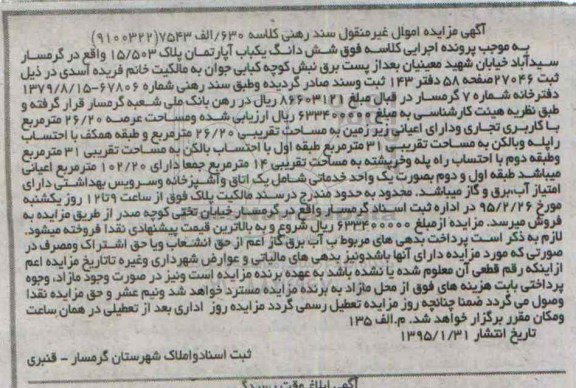 آگهی مزایده اموال غیرمنقول سند رهنی کلاسه ۶۳۰/الف ۷۵۴۳(۹۱۰۰۳۲۲)
به موجب پرونده اجرایی کلاسه فوق شش دانگ یکباب آپارتمان پلاک ۱۵/۵۰۳ واقع در گرمسار
سیدآباد خیابان شهید معینیان بعداز پست برق نبش کوچه کبابی جوان به مالکیت خانم فریده اسدی در ذیل
ثبت ۲۷۰۴۶صفحه ۵۸ دفتر ۱۴۳ ثبت وسند صادر گردیده وطبق سند رهنی شماره ۶۷۸۰۶-۱۳۷۹/۸/۱۵
دفترخانه شماره ۷ گرمسار در قبال مبلغ ۸۶۶۰۳۱۲۱ ریال در رهن بانک ملی شعبه گرمسار قرار گرفته و
طبق نظریه هیئت کارشناسی به مبلغ ۶۳۳۴۰۰۰۰۰ ریال ارزیابی شده ومساحت عرصه ۲۶/۲۰ مترمربع
با کاربری تجاری ودارای اعیانی زیر زمین به مساحت تقریبی ۲۶/۲۰ مترمربع و طبقه همکف با احتساب
راپله وبالکن به مساحت تقریبی ۳۱ مترمربع طبقه اول با احتساب بالکن به مساحت تقریبی ۳۱ مترمربع
وطبقه دوم با احتساب راه پله وخرپشته به مساحت تقریبی ۱۴ مترمربع جمعا دارای ۱۰۲/۲۰ مترمربع اعیانی
میباشد طبقه اول و دوم بصورت یک واحد خدماتی شامل یک اتاق وآشپزخانه وسرویس بهداشتی دارای
امتیاز آب،برق و گاز میباشد. محدود به حدود مندرج درسند مالکیت پلاک فوق از ساعت ۹ تا ۱۲ روز یکشنبه
مورخ ۹۵/۲/۲۶ در اداره ثبت اسناد گرمسار واقع در گرمسار خیابان تختی کوچه صدر از طریق مزایده به
فروش میرسد. مزایده از مبلغ ۶۳۳۴۰۰۰۰۰ ریال شروع و به بالاترین قیمت پیشنهادی نقدا فروخته میشود.
لازم به ذکر است پرداخت بدهی های مربوط ب آب برق گاز اعم از حق انشعاب ویا حق اشتراک ومصرف در
صورتی که مورد مزایده دارای آنها باشدونیز بدهی های مالیاتی و عوارض شهرداری وغیره تاتاریخ مزایده اعم
ازاینکه رقم قطعی آن معلوم شده یا نشده باشد به عهده برنده مزایده است ونیز در صورت وجود مازاد، وجوه
پرداختی بابت هزینه های فوق از محل مازاد به برنده مزایده مسترد خواهد شد ونیم عشر و حق مزایده نقدا
وصول می گردد ضمنا چنانچه روز مزایده تعطیل رسمی گردد مزایده روز اداری بعد از تعطیلی در همان ساعت
ومکان مقرر برگزار خواهد شد. م.الف ۱۳۵
تاریخ انتشار ۱۳۹۵/۱/۳۱
ثبت اسنادواملاک شهرستان گرمسار - قنبری
آگهی ابلاغ وقت رسیدگی